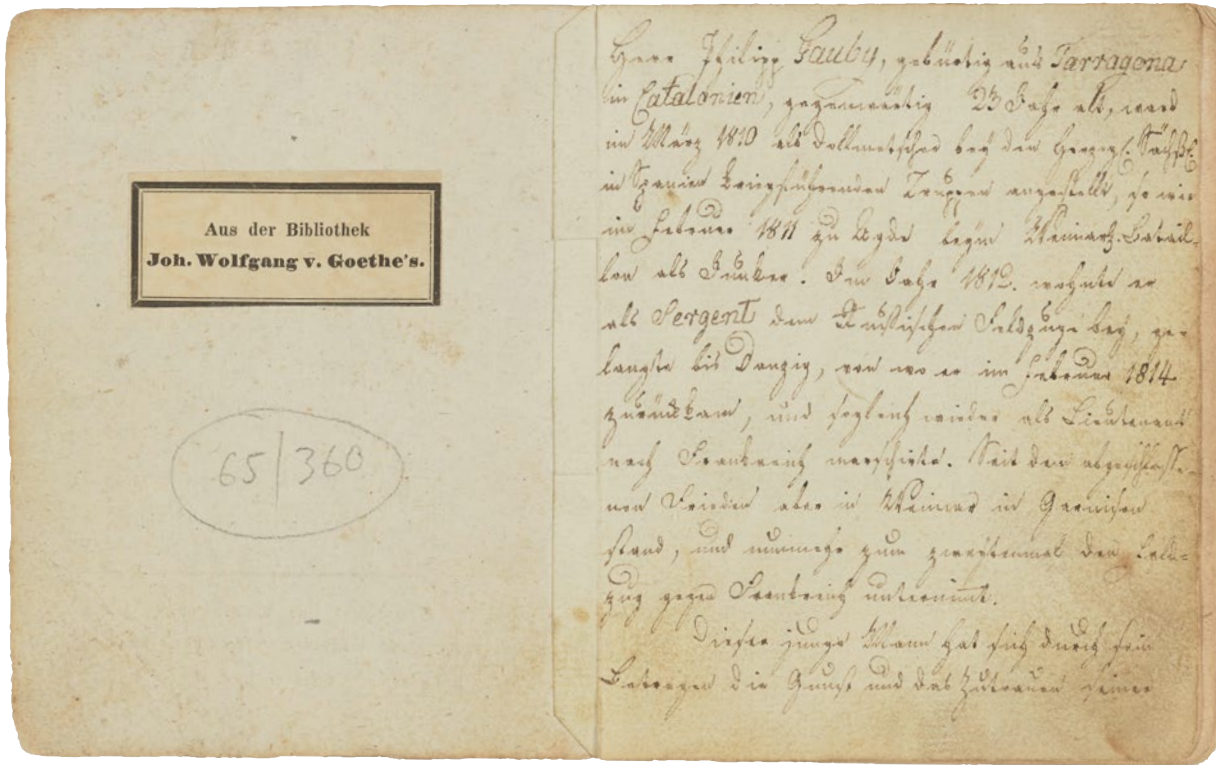 Aus der Bibliothek
Joh. Wolfgang v. Goethe's.
65/360
Herr Philipp Gauby, gebürtig aus Tarragona
in Catalonien, gegenwärtig 23 Jahr alt, ward
im März 1810 als Dollmetscher bey den Herzogl. Sächß.
in Spanien kriegführenden Truppen angestellt, so wie
im Februar 1811 zu Agde beym Weimar. Batail-
lon als Junker. Im Jahr 1812. wohnte er
als Sergent dem Russischen Feldzuge bey, ge-
langte bis Danzig, von wo er im Februar 1814
zurückkam, und sogleich wieder als Lieutenant
nach Frankreich marschirte. Seit dem abgeschlosse-
nen Frieden aber in Weimar in Garnison
stand, und nunmehr zum zweytenmal den Feld-
zug gegen Frankreich unternimmt.
Dieser junge Mann hat sich durch sein
Betragen die Gunst und das Zutrauen seiner